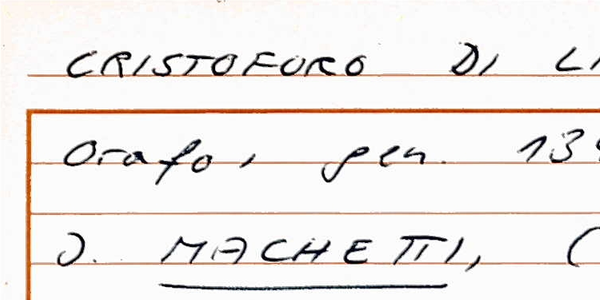 CRISTOFORO DI
Orafo, gen. 13
J. MACHETTI, (